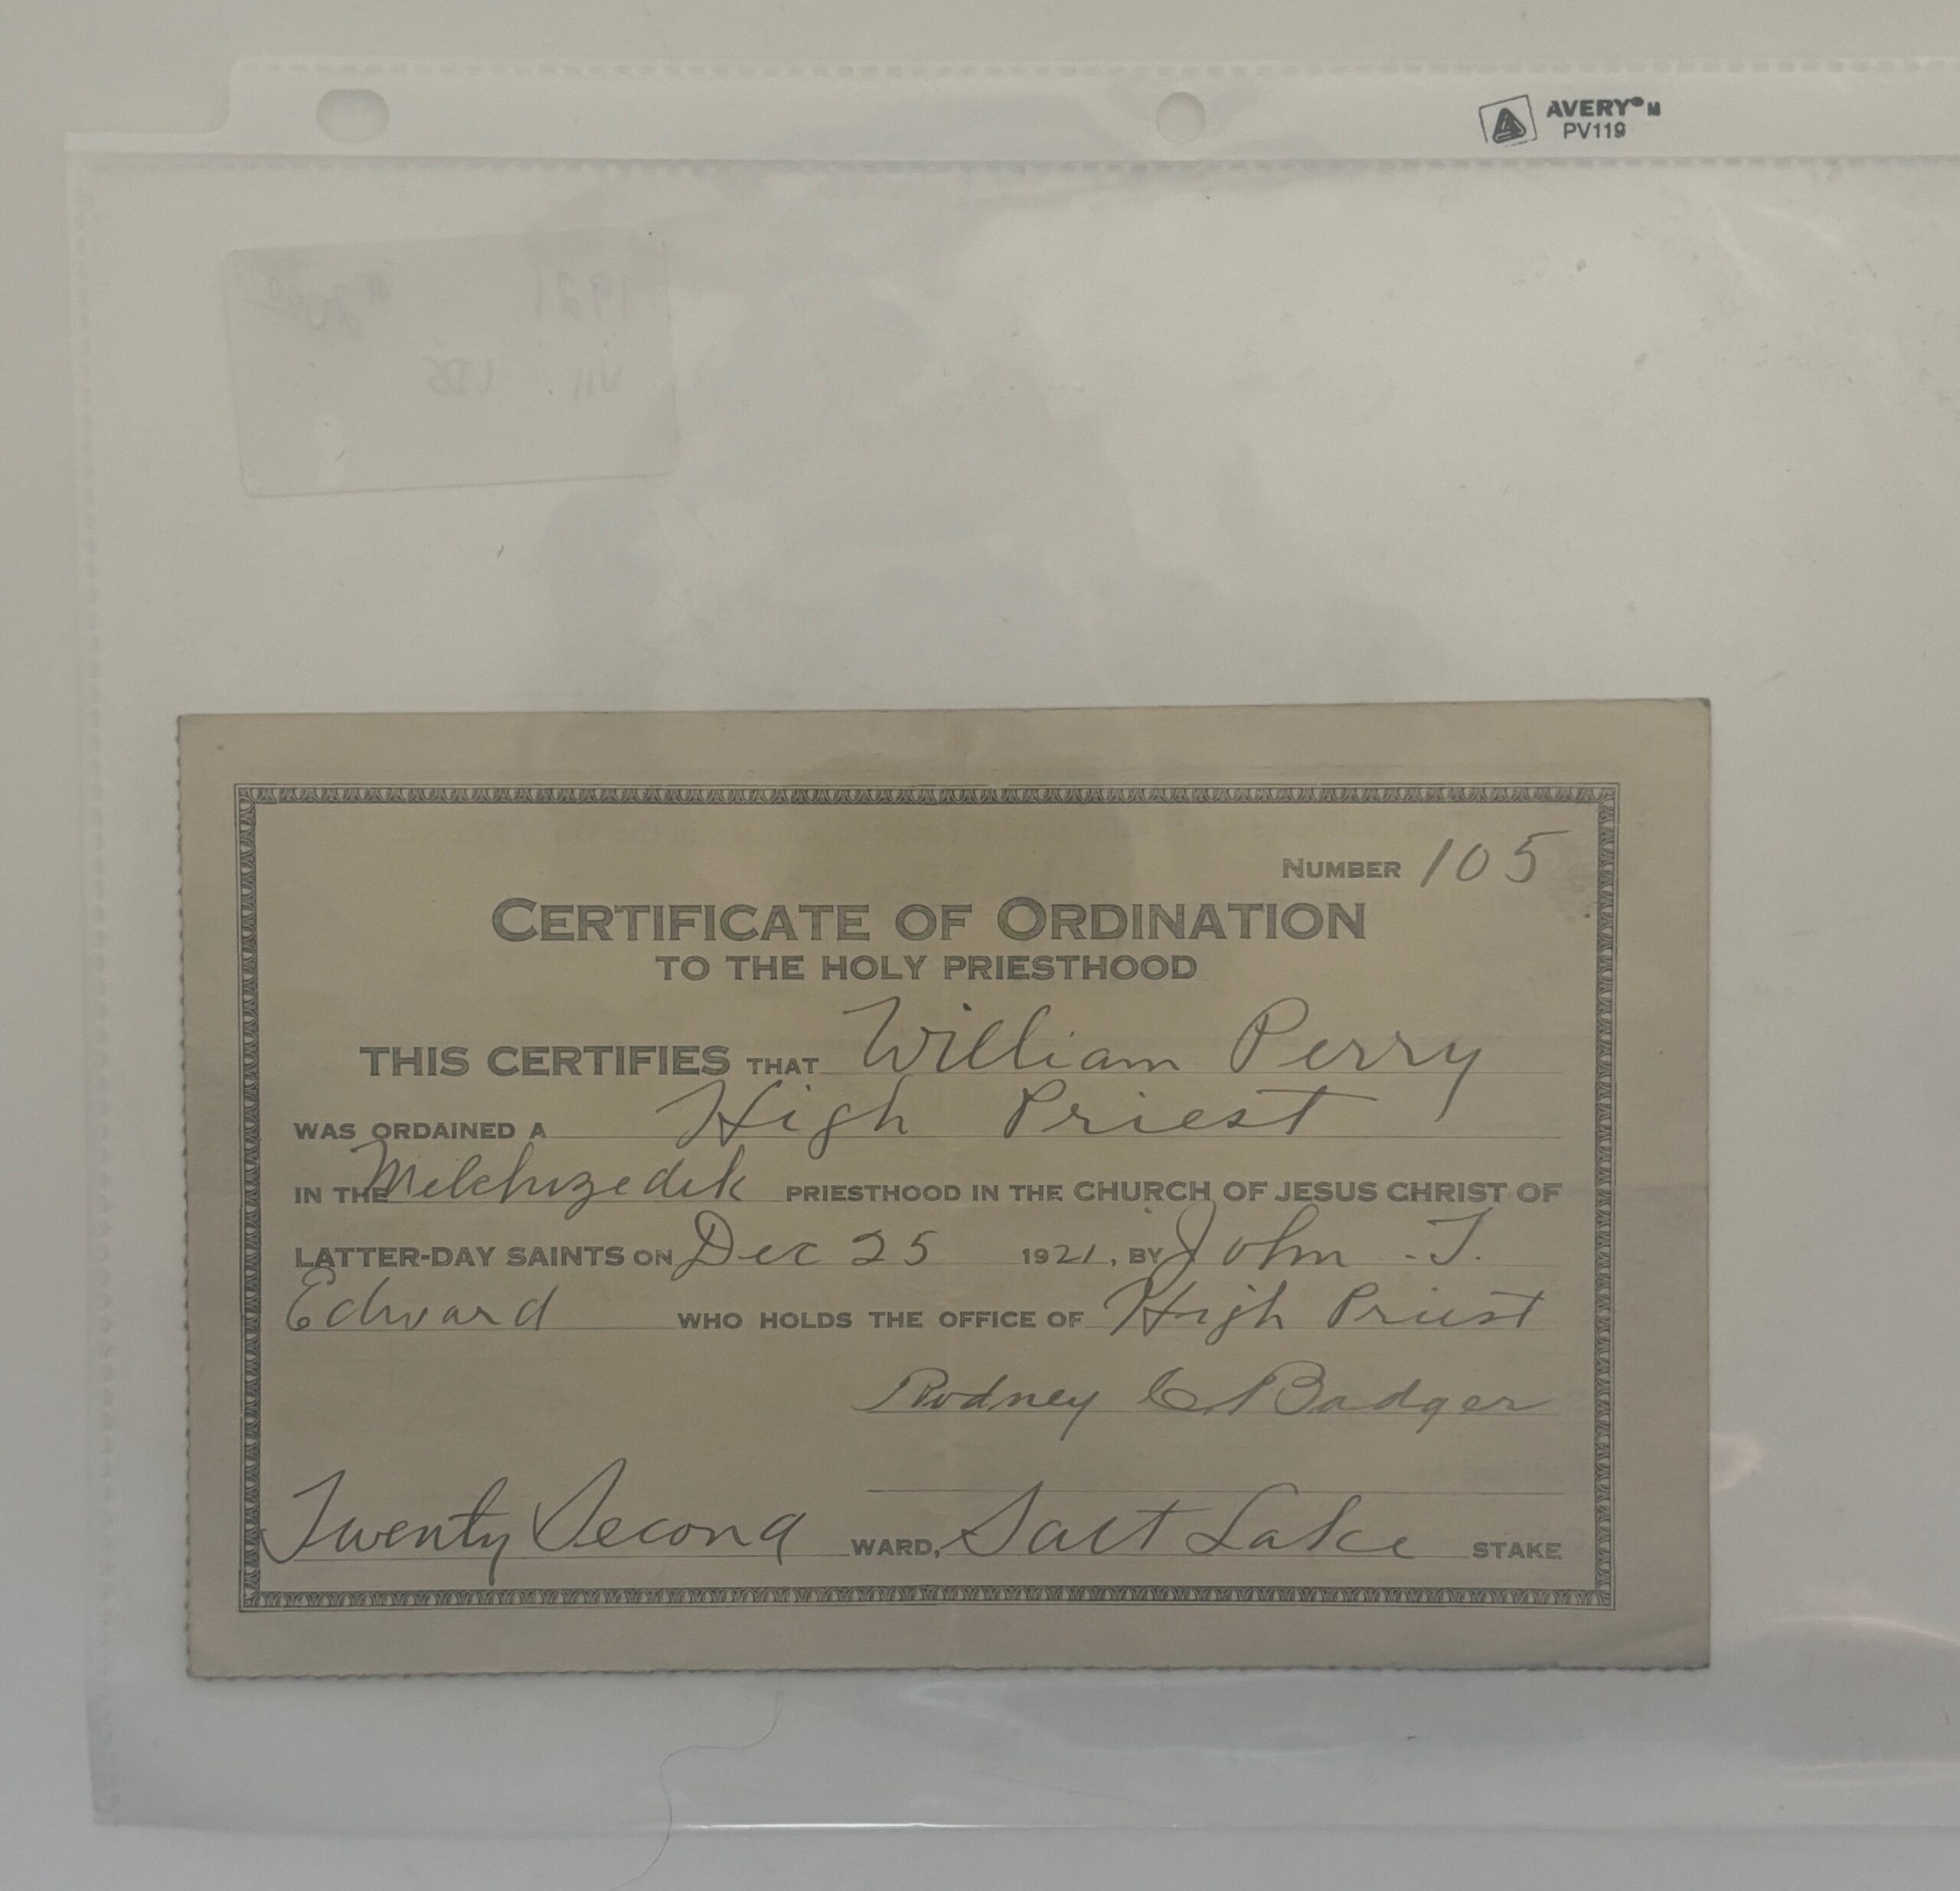 AVERY® M
PV119
1921 $2000
VII LDS
NUMBER 105
CERTIFICATE OF ORDINATION
TO THE HOLY PRIESTHOOD
THIS CERTIFIES THAT William Perry
WAS ORDAINED A High Priest
IN THE Melchizedek PRIESTHOOD IN THE CHURCH OF JESUS CHRIST OF
LATTER-DAY SAINTS ON Dec 25 1921, BY John T.
Edward WHO HOLDS THE OFFICE OF High Priest
Rodney C. Badger
Twenty Second WARD, Salt Lake STAKE